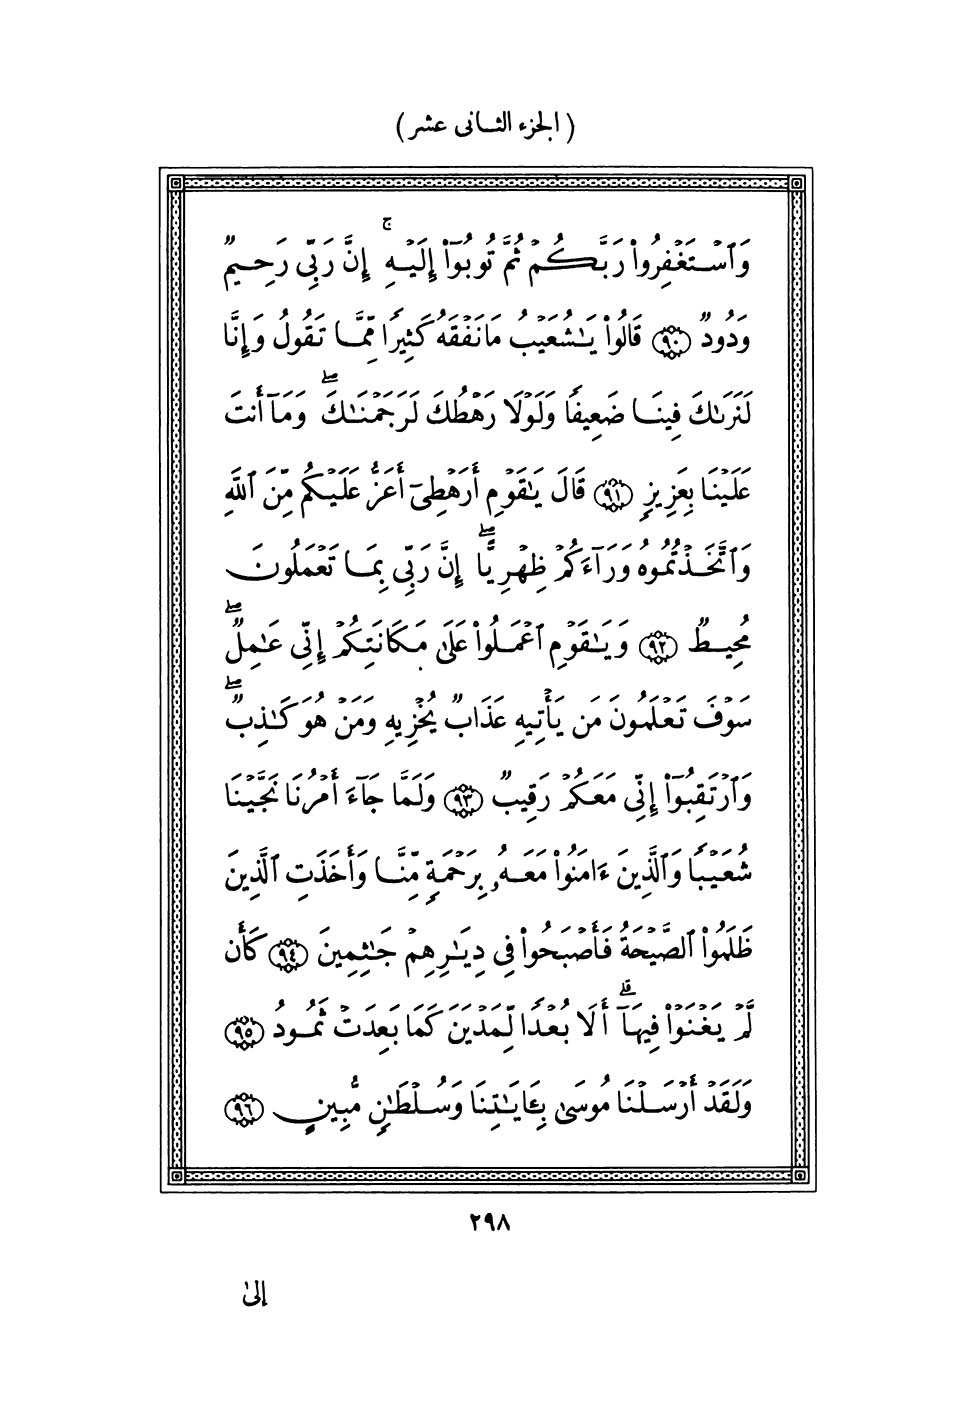 (الجزء الثانى عشر)
وَٱسْتَغْفِرُوا۟ رَبَّكُمْ ثُمَّ تُوبُوٓا۟ إِلَيْهِ ۚ إِنَّ رَبِّى رَحِيمٌ
وَدُودٌ ۝٩٠ قَالُوا۟ يَـٰشُعَيْبُ مَا نَفْقَهُ كَثِيرًا مِّمَّا تَقُولُ وَإِنَّا
لَنَرَىٰكَ فِينَا ضَعِيفًا وَلَوْلَا رَهْطُكَ لَرَجَمْنَـٰكَ ۖ وَمَآ أَنتَ
عَلَيْنَا بِعَزِيزٍ ۝٩١ قَالَ يَـٰقَوْمِ أَرَهْطِىٓ أَعَزُّ عَلَيْكُم مِّنَ ٱللَّهِ
وَٱتَّخَذْتُمُوهُ وَرَآءَكُمْ ظِهْرِيًّا ۖ إِنَّ رَبِّى بِمَا تَعْمَلُونَ
مُحِيطٌ ۝٩٢ وَيَـٰقَوْمِ ٱعْمَلُوا۟ عَلَىٰ مَكَانَتِكُمْ إِنِّى عَـٰمِلٌ ۖ
سَوْفَ تَعْلَمُونَ مَن يَأْتِيهِ عَذَابٌ يُخْزِيهِ وَمَنْ هُوَ كَـٰذِبٌ ۖ
وَٱرْتَقِبُوٓا۟ إِنِّى مَعَكُمْ رَقِيبٌ ۝٩٣ وَلَمَّا جَآءَ أَمْرُنَا نَجَّيْنَا
شُعَيْبًا وَٱلَّذِينَ ءَامَنُوا۟ مَعَهُۥ بِرَحْمَةٍ مِّنَّا وَأَخَذَتِ ٱلَّذِينَ
ظَلَمُوا۟ ٱلصَّيْحَةُ فَأَصْبَحُوا۟ فِى دِيَـٰرِهِمْ جَـٰثِمِينَ ۝٩٤ كَأَن
لَّمْ يَغْنَوْا۟ فِيهَآ ۗ أَلَا بُعْدًا لِّمَدْيَنَ كَمَا بَعِدَتْ ثَمُودُ ۝٩٥
وَلَقَدْ أَرْسَلْنَا مُوسَىٰ بِـَٔايَـٰتِنَا وَسُلْطَـٰنٍ مُّبِينٍ ۝٩٦
٢٩٨
إلىٰ